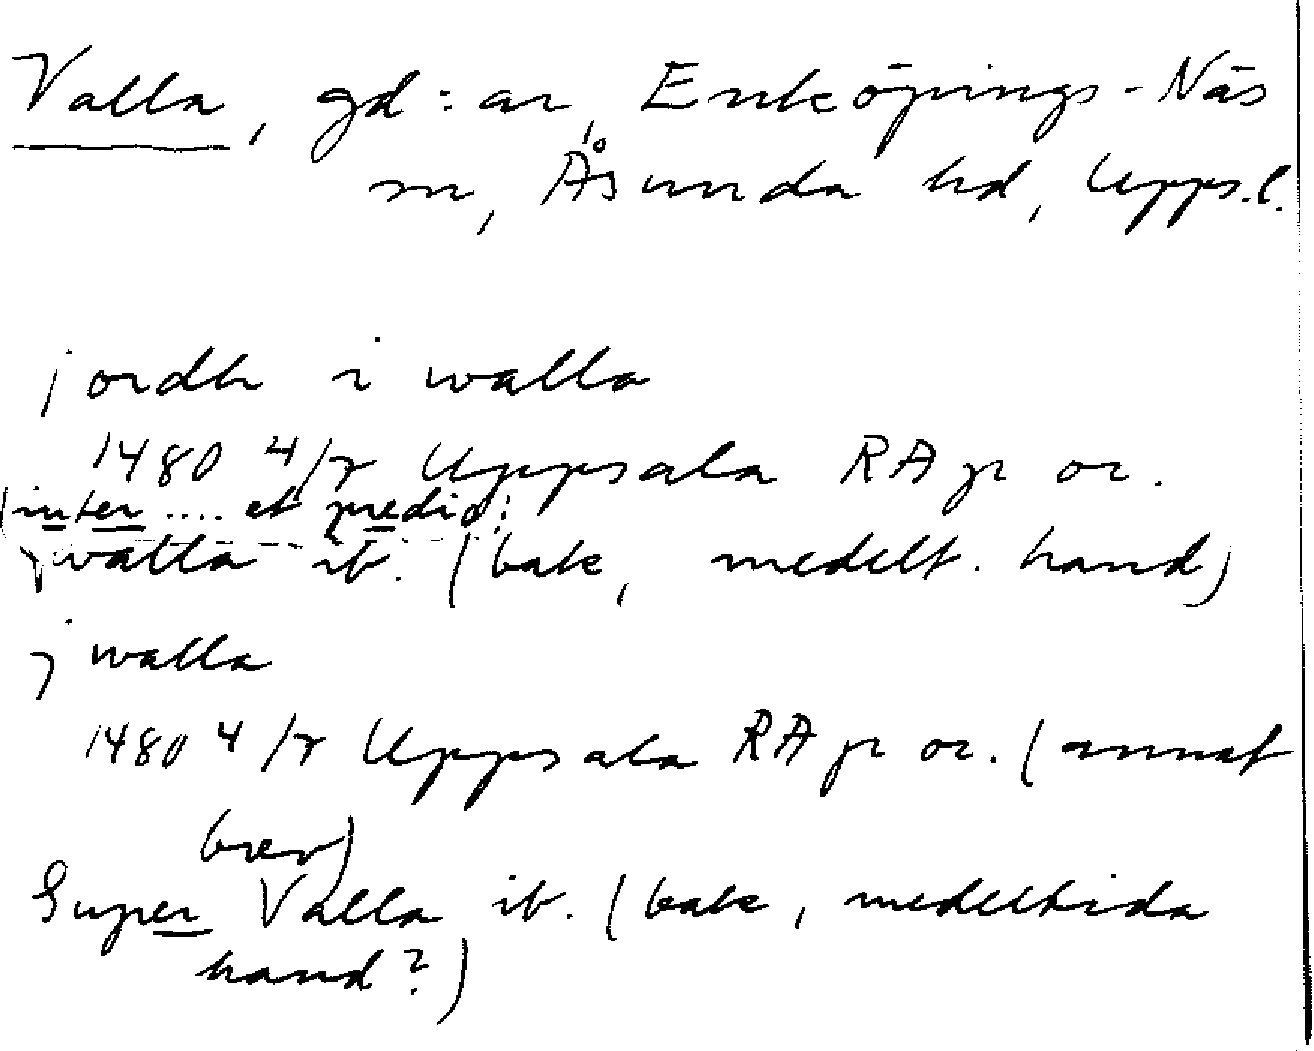 Valla, gd:ar, Enköpings-Näs
sn, Åsunda hd, Upps.l.
jordh i walla
1480 4/2 Uppsala RAp or.
(inter .... et predic:
walla ib. (bak, medelt. hand)
j walla
1480 4/2 Uppsala RAp or. (annat
brev)
Super Valla ib. (bak, medeltida
hand?)